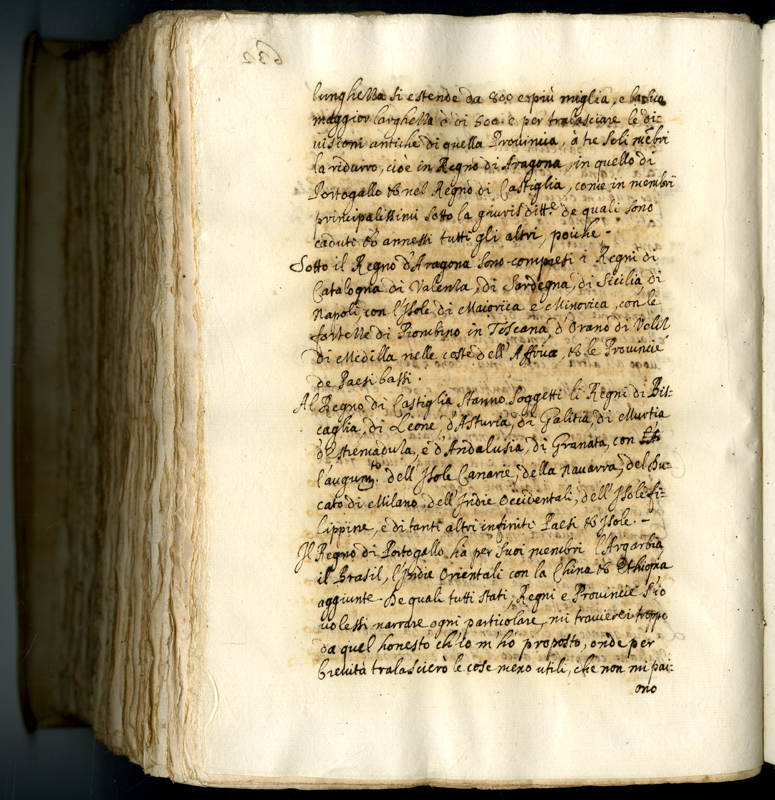 632
lunghezza si estende da 800 e più miglia, e la sua
maggior larghezza è di 500 e per tralasciare le di-
visioni antiche di quella Provincia, à tre soli mẽbri
la ridurrò, cioè in Regno di Aragona, in quello di
Portogallo et nel Regno di Castiglia, come in membri
principalissimi sotto la giurisditt.e de quali sono
caduti et annessi tutti gli altri, poiche -
Sotto il Regno d'Aragona sono compresi i Regni di
Catalogna di Valenza, di Sardegna, di Sicilia, di
Napoli, con l'Isole di Maiorica e Minorica, con le
fortezze di Piombino in Toscana, d'Orano di Velez
di Medilla nelle coste dell'Affrica, et le Provincie
de Paesi bassi.
Al Regno di Castiglia stanno soggetti li Regni di Bis-
caglia, di Leone, d'Asturia, di Galitia, di Murtia
d'Estremadula, e d'Andalusia, di Granata, con
l'augum.to dell'Isole Canarie, della Navarra, del Du-
cato di Milano, dell'Indie Occidentali, dell'Isole fi-
lippine, e di tanti altri infiniti Paesi et Isole. -
Il Regno di Portogallo ha per suoi membri l'Argarbia
il Brasil, l'Indie Orientali con la China et Ethiopia
aggiunte. De quali tutti stati, Regni e Provincie s'io
volessi narrare ogni particolare, mi troverei troppo
da quel honesto ch'io m'hò proposto, onde per
brevità tralascierò le cose meno utili, che non mi pai-
ono